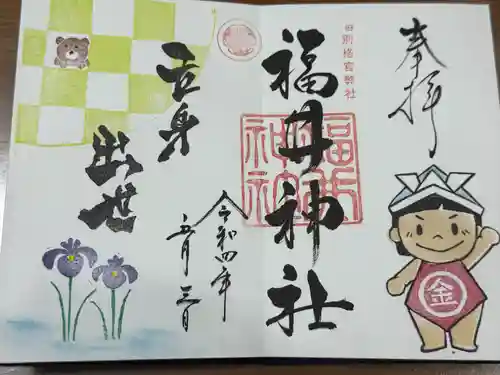 奉拝
旧別格官幣社
福井神社
福井
神社
令和四年
五月三日
立身
出世
金